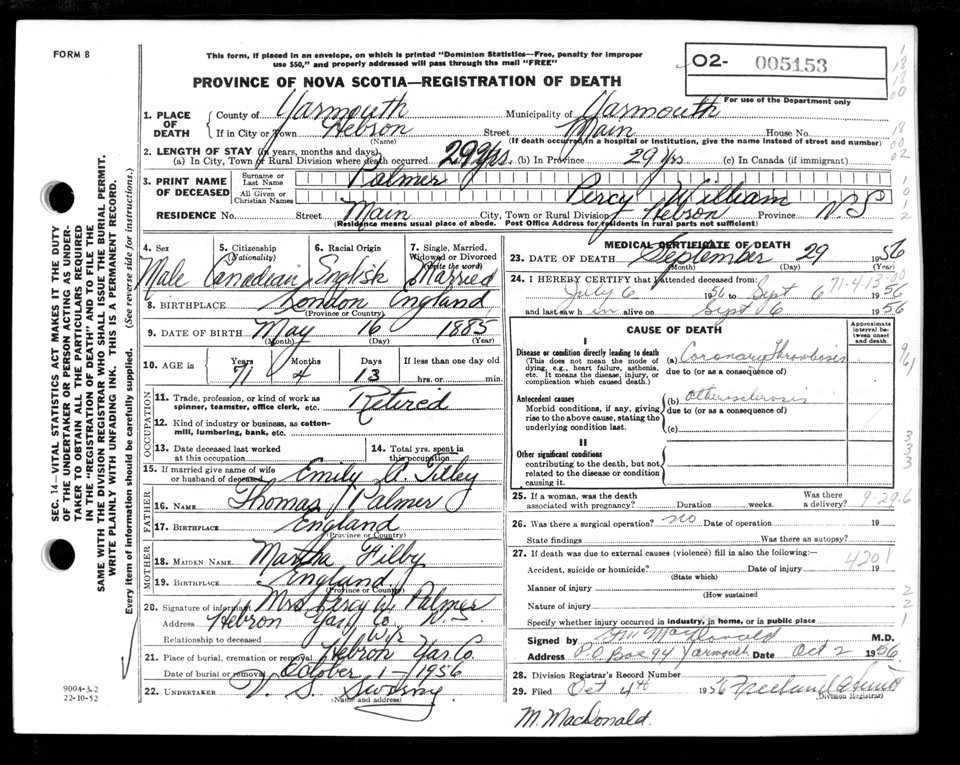 FORM 8
This form, if placed in an envelope, on which is printed "Dominion Statistics—Free, penalty for improper
use $50," and properly addressed will pass through the mail "FREE"
O2- 005153
For use of the Department only
PROVINCE OF NOVA SCOTIA—REGISTRATION OF DEATH
1. PLACE OF DEATH County of Yarmouth Municipality of Yarmouth
If in City or Town Hebron Street Main House No.
(Name) (If death occurred in a hospital or institution, give the name instead of street and number)
2. LENGTH OF STAY (in years, months and days)
(a) In City, Town or Rural Division where death occurred 29 yrs. (b) In Province 29 yrs. (c) In Canada (if immigrant)
3. PRINT NAME OF DECEASED Surname or Last Name Palmer
All Given or Christian Names Percy William
RESIDENCE No. Street Main City, Town or Rural Division Hebron Province N.S
(Residence means usual place of abode. Post Office Address for residents in rural parts not sufficient)
4. Sex 5. Citizenship (Nationality) 6. Racial Origin 7. Single, Married, Widowed or Divorced (write the word)
Male Canadian English Married
8. BIRTHPLACE London England
(Province or Country)
9. DATE OF BIRTH May 16 1885
(Month) (Day) (Year)
10. AGE in Years Months Days If less than one day old
71 4 13 hrs. or min.
OCCUPATION
11. Trade, profession, or kind of work as spinner, teamster, office clerk, etc. Retired
12. Kind of industry or business, as cotton-mill, lumbering, bank, etc.
13. Date deceased last worked at this occupation 14. Total yrs. spent in this occupation
15. If married give name of wife or husband of deceased Emily A. Tilley
FATHER
16. NAME Thomas Palmer
17. BIRTHPLACE England
(Province or Country)
MOTHER
18. MAIDEN NAME Martha Filby
19. BIRTHPLACE England
(Province or Country)
20. Signature of informant Mrs Percy W. Palmer
Address Hebron Yar. Co. N.S.
Relationship to deceased Wife
21. Place of burial, cremation or removal Hebron Yar. Co.
Date of burial or removal October 1 - 1956
22. UNDERTAKER S. Sweeny
(Name and address)
MEDICAL CERTIFICATE OF DEATH
23. DATE OF DEATH September 29 1956
(Month) (Day) (Year)
24. I HEREBY CERTIFY that I attended deceased from: 71-4-13
July 6 1956 to Sept 6 1956
and last saw h im alive on Sept 6 1956
CAUSE OF DEATH
Approximate interval between onset and death
I
Disease or condition directly leading to death (a) Coronary Thrombosis
(This does not mean the mode of dying, e.g., heart failure, asthenia, etc. It means the disease, injury, or complication which caused death.) due to (or as a consequence of)
Antecedent causes (b) Atherosclerosis
Morbid conditions, if any, giving rise to the above cause, stating the underlying condition last. due to (or as a consequence of)
(c)
II
Other significant conditions
contributing to the death, but not related to the disease or condition causing it.
25. If a woman, was the death associated with pregnancy? Duration weeks. Was there a delivery? 9-29-6
26. Was there a surgical operation? no Date of operation 19
State findings Was there an autopsy?
27. If death was due to external causes (violence) fill in also the following:— 4201
Accident, suicide or homicide? Date of injury 19
(State which)
Manner of injury
(How sustained
Nature of injury
Specify whether injury occurred in industry, in home, or in public place
Signed by MacDonald M.D.
Address P.O Box 94 Yarmouth Date Oct 2 1956
28. Division Registrar's Record Number
29. Filed Oct 4th 1956 Freeland
(Division Registrar)
M. MacDonald.
9004-3.2
22-10-52
SEC. 14—VITAL STATISTICS ACT MAKES IT THE DUTY
OF THE UNDERTAKER OR PERSON ACTING AS UNDER-
TAKER TO OBTAIN ALL THE PARTICULARS REQUIRED
IN THE "REGISTRATION OF DEATH" AND TO FILE THE
SAME WITH THE DIVISION REGISTRAR WHO SHALL ISSUE THE BURIAL PERMIT.
WRITE PLAINLY WITH UNFADING INK. THIS IS A PERMANENT RECORD.
Every item of information should be carefully supplied. (See reverse side for instructions.)